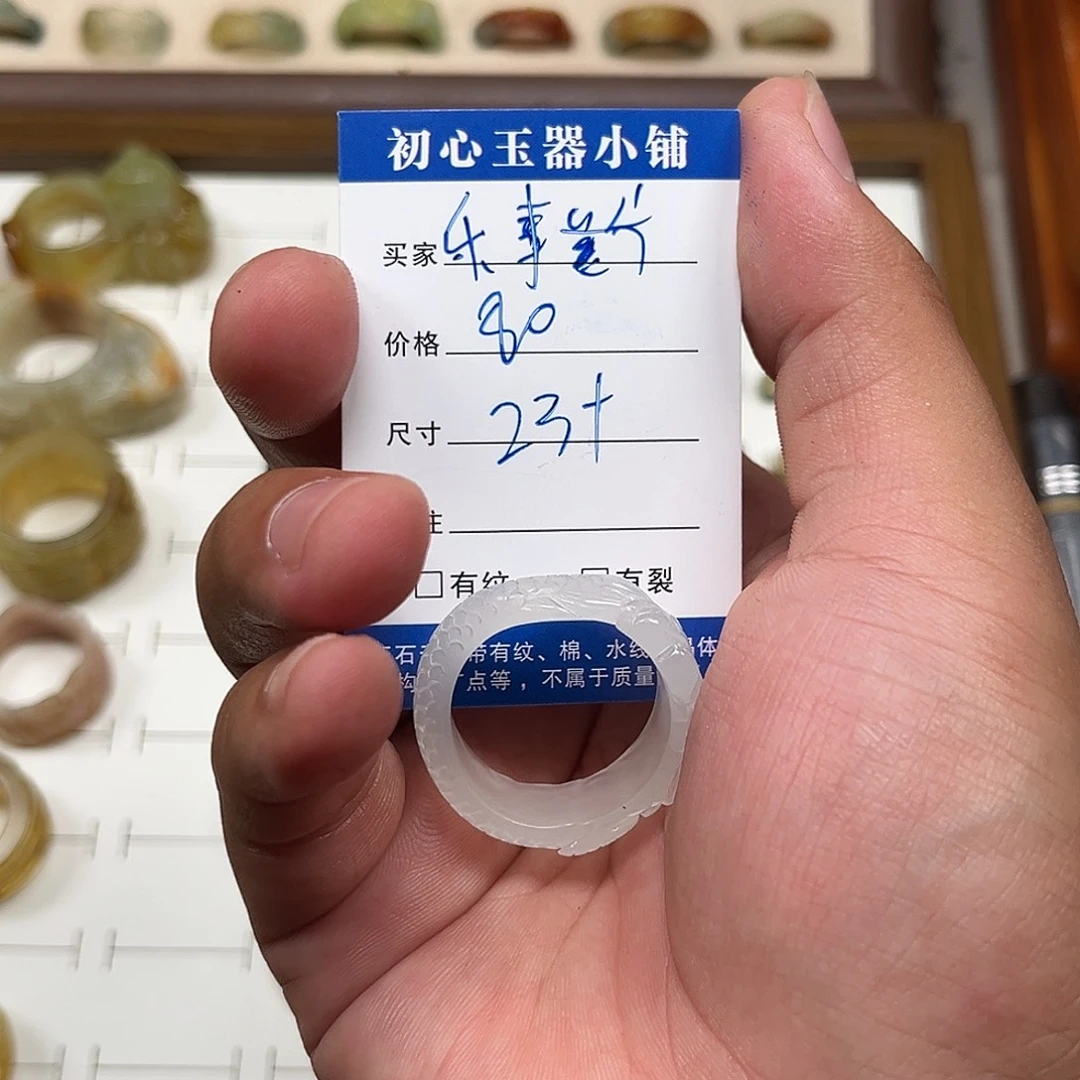 初心玉器小铺
买家 乐事
价格 80
尺寸 23+
注
有纹 有裂
石 带有纹、棉、水线 体
构 点等，不属于质量